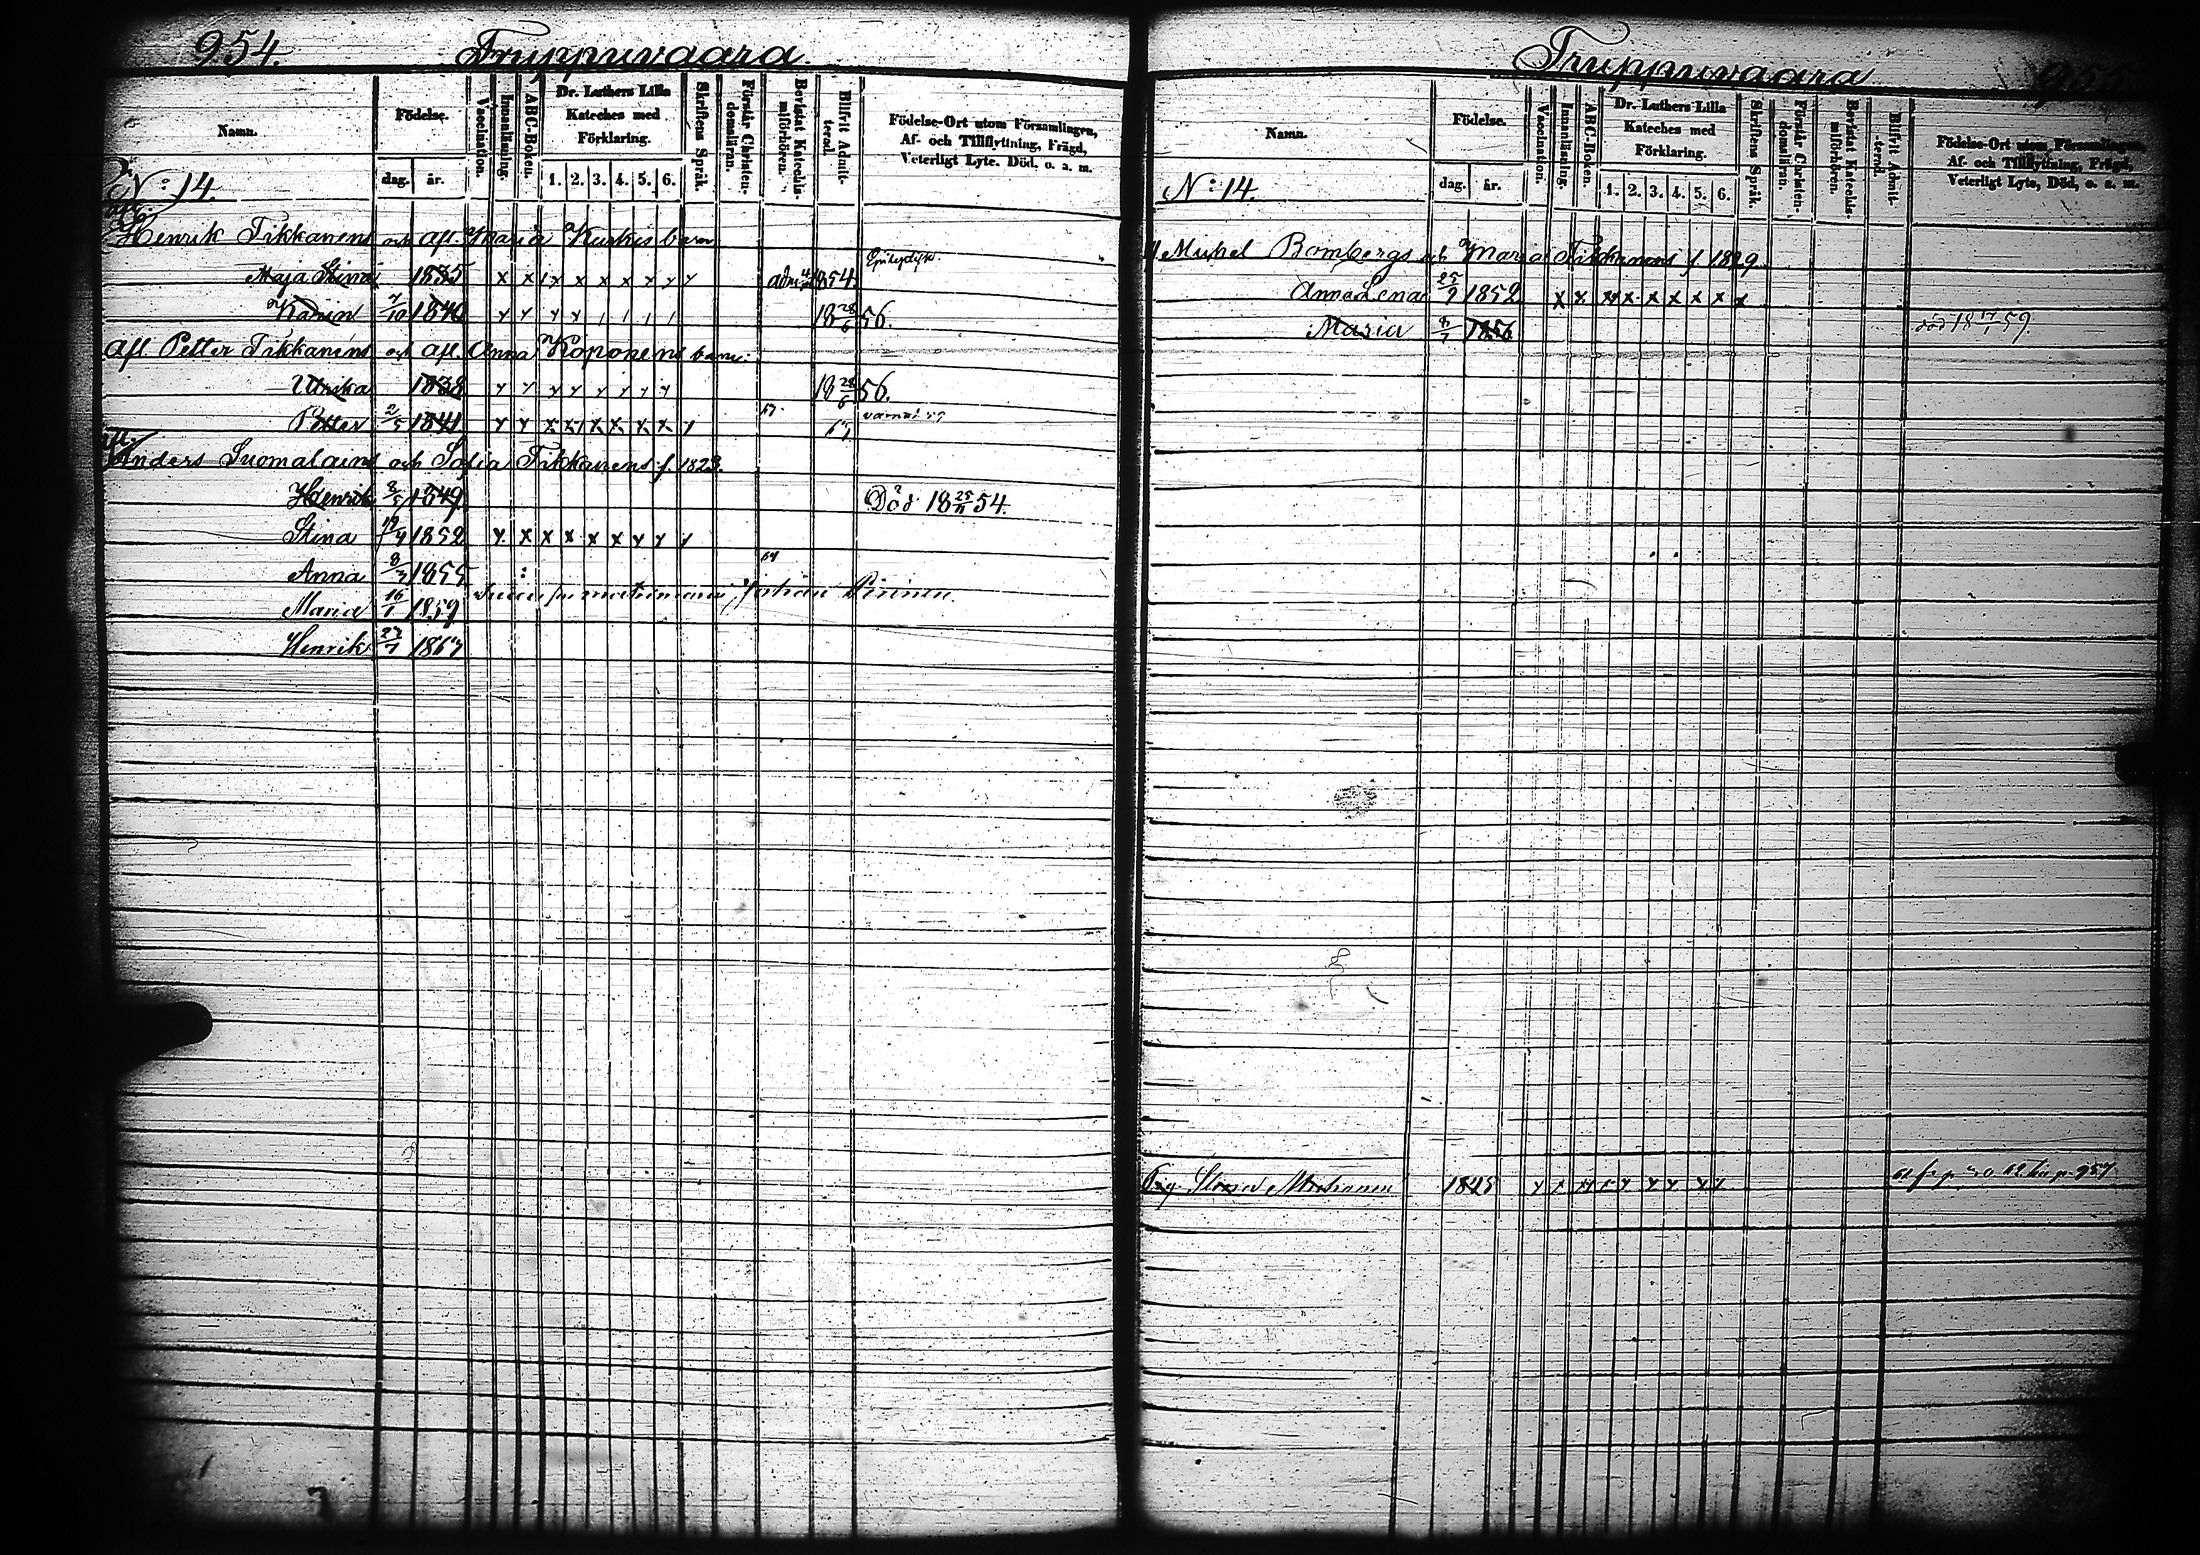 954.
Truppuvaara
Namn.
Födelse.
dag. år.
Vaccination.
Innanläsning.
ABC-Boken.
Dr. Luthers Lilla
Kateches med
Förklaring.
1. 2. 3. 4. 5. 6.
Skriftens Språk.
Förstår Christen-
domsläran.
Bevistat Katechis-
miförhören.
Blifvit Admit-
terad.
Födelse-Ort utom Församlingen,
Af- och Tillflyttning, Frägd,
Veterligt Lyte. Död. o. a. m.
N:14.
Henrik Tikkanens och afl. Maria Kurkis barn
Maja Stina 1835 x x x x x x x x x 1854.
Karin 7/10 1840 18 28/6 56.
Afl Petter Tikkanens och Afl. Anna Koponens barn:
Ulrika 1838 18 28/6 56.
Petter 2/5 1841
afl.
Anders Suomalains och Sofia Tikkanens f. 1823.
Henrik 8/5 1849. Död 18 25/11 54.
Stina 1852 x x x x x x x x
Anna 8/3 1855
Maria 16/1 1859
Henrik 1867
Truppuvaara
955
Namn.
Födelse.
dag. år.
Vaccination.
Innanläsning.
ABC-Boken.
Dr. Luthers Lilla
Kateches med
Förklaring.
1. 2. 3. 4. 5. 6.
Skriftens Språk.
Förstår Christen-
domsläran.
Bevistat Katechis-
miförhören.
Blifvit Admit-
terad.
Födelse-Ort utom Församlingen,
Af- och Tillflyttning, Frägd,
Veterligt Lyte, Död, o. a. m.
N:14.
Mickel Bombergs och Maria Tikkanens f. 1829.
Anna Lena 25/9 1852 x x x x x x x x x
Maria 8/7 1856 död 18 17/1 59.
1825 p. 957